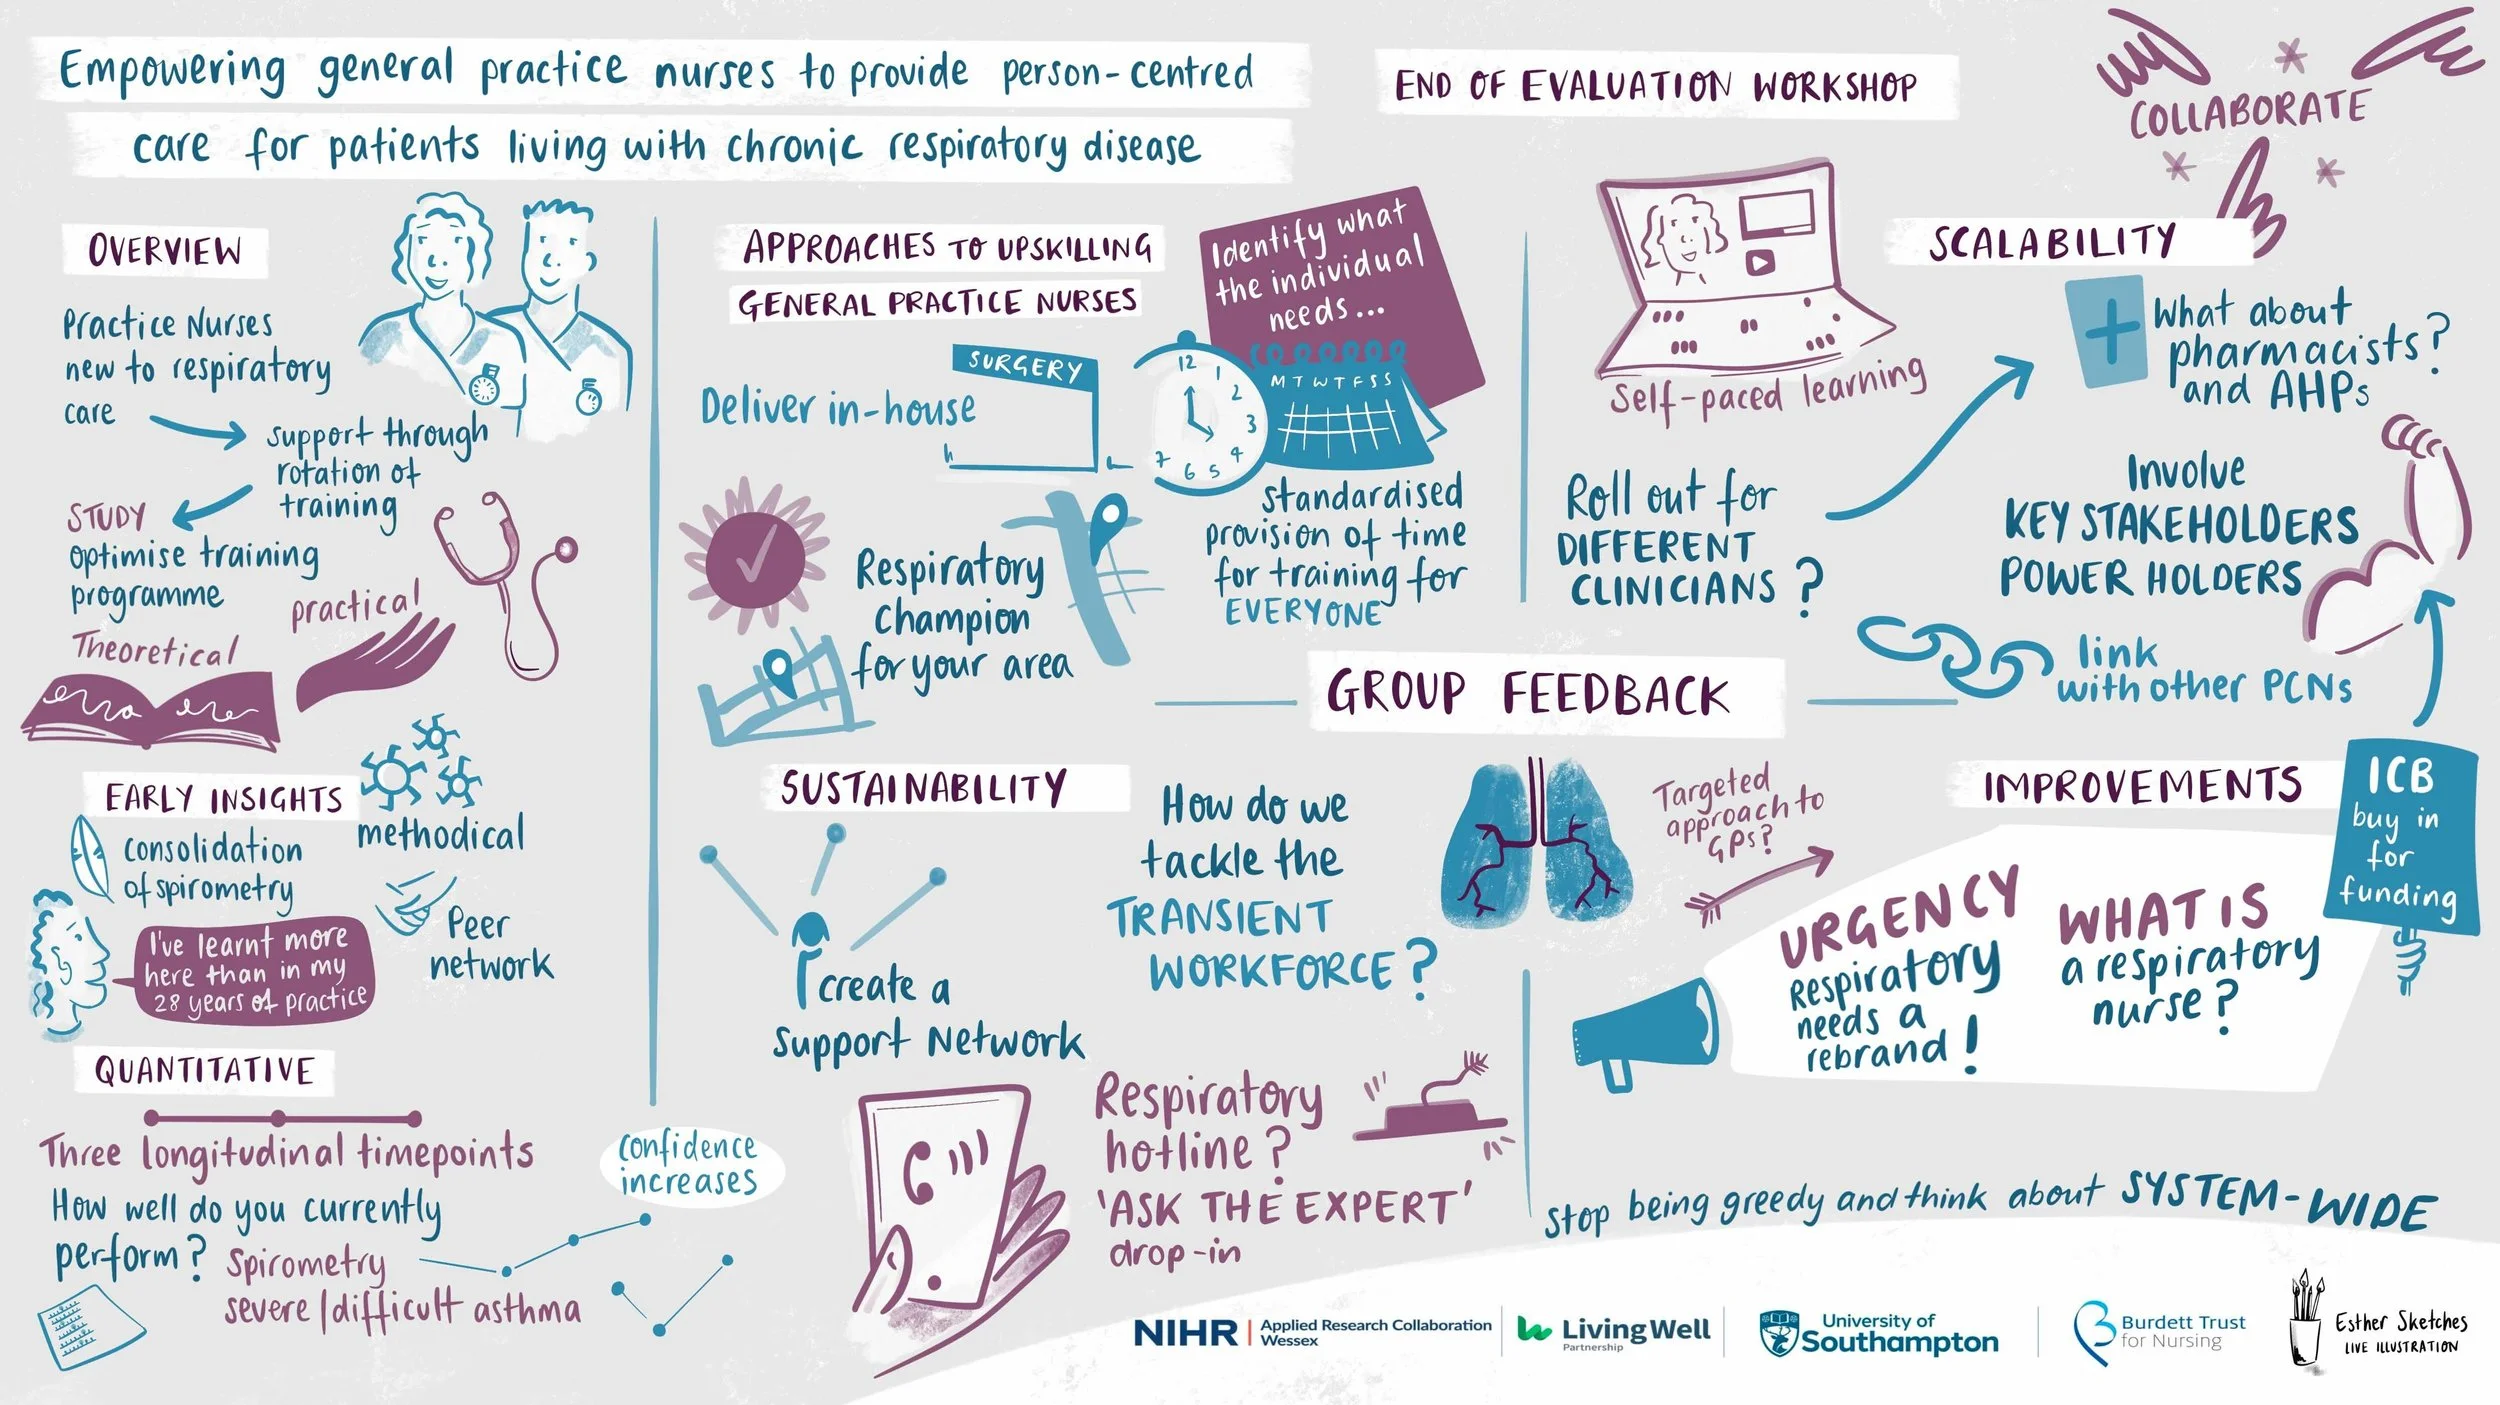 Empowering general practice nurses to provide person-centred
care for patients living with chronic respiratory disease
END OF EVALUATION WORKSHOP
COLLABORATE
OVERVIEW
Practice Nurses
new to respiratory
care
support through
rotation of
training
STUDY
optimise training
programme
practical
Theoretical
EARLY INSIGHTS
consolidation
of spirometry
methodical
Peer
network
I've learnt more
here than in my
28 years of practice
QUANTITATIVE
Three longitudinal timepoints
How well do you currently
perform?
Spirometry
severe/difficult asthma
confidence
increases
APPROACHES TO UPSKILLING
GENERAL PRACTICE NURSES
Deliver in-house
SURGERY
Identify what
the individual
needs...
12
1
2
3
4
5
6
7
M T W T F S S
standardised
provision of time
for training for
EVERYONE
Respiratory
champion
for your area
Self-paced learning
Roll out for
DIFFERENT
CLINICIANS?
SCALABILITY
What about
pharmacists?
and AHPs
Involve
KEY STAKEHOLDERS
POWER HOLDERS
link
with other PCNs
GROUP FEEDBACK
SUSTAINABILITY
create a
Support Network
How do we
tackle the
TRANSIENT
WORKFORCE?
Respiratory
hotline?
'ASK THE EXPERT'
drop-in
Targeted
approach to
GPs?
IMPROVEMENTS
ICB
buy in
for
funding
URGENCY
Respiratory
needs a
rebrand!
WHAT IS
a respiratory
nurse?
Stop being greedy and think about SYSTEM-WIDE
NIHR | Applied Research Collaboration
Wessex
Living Well
Partnership
University of
Southampton
Burdett Trust
for Nursing
Esther Sketches
LIVE ILLUSTRATION